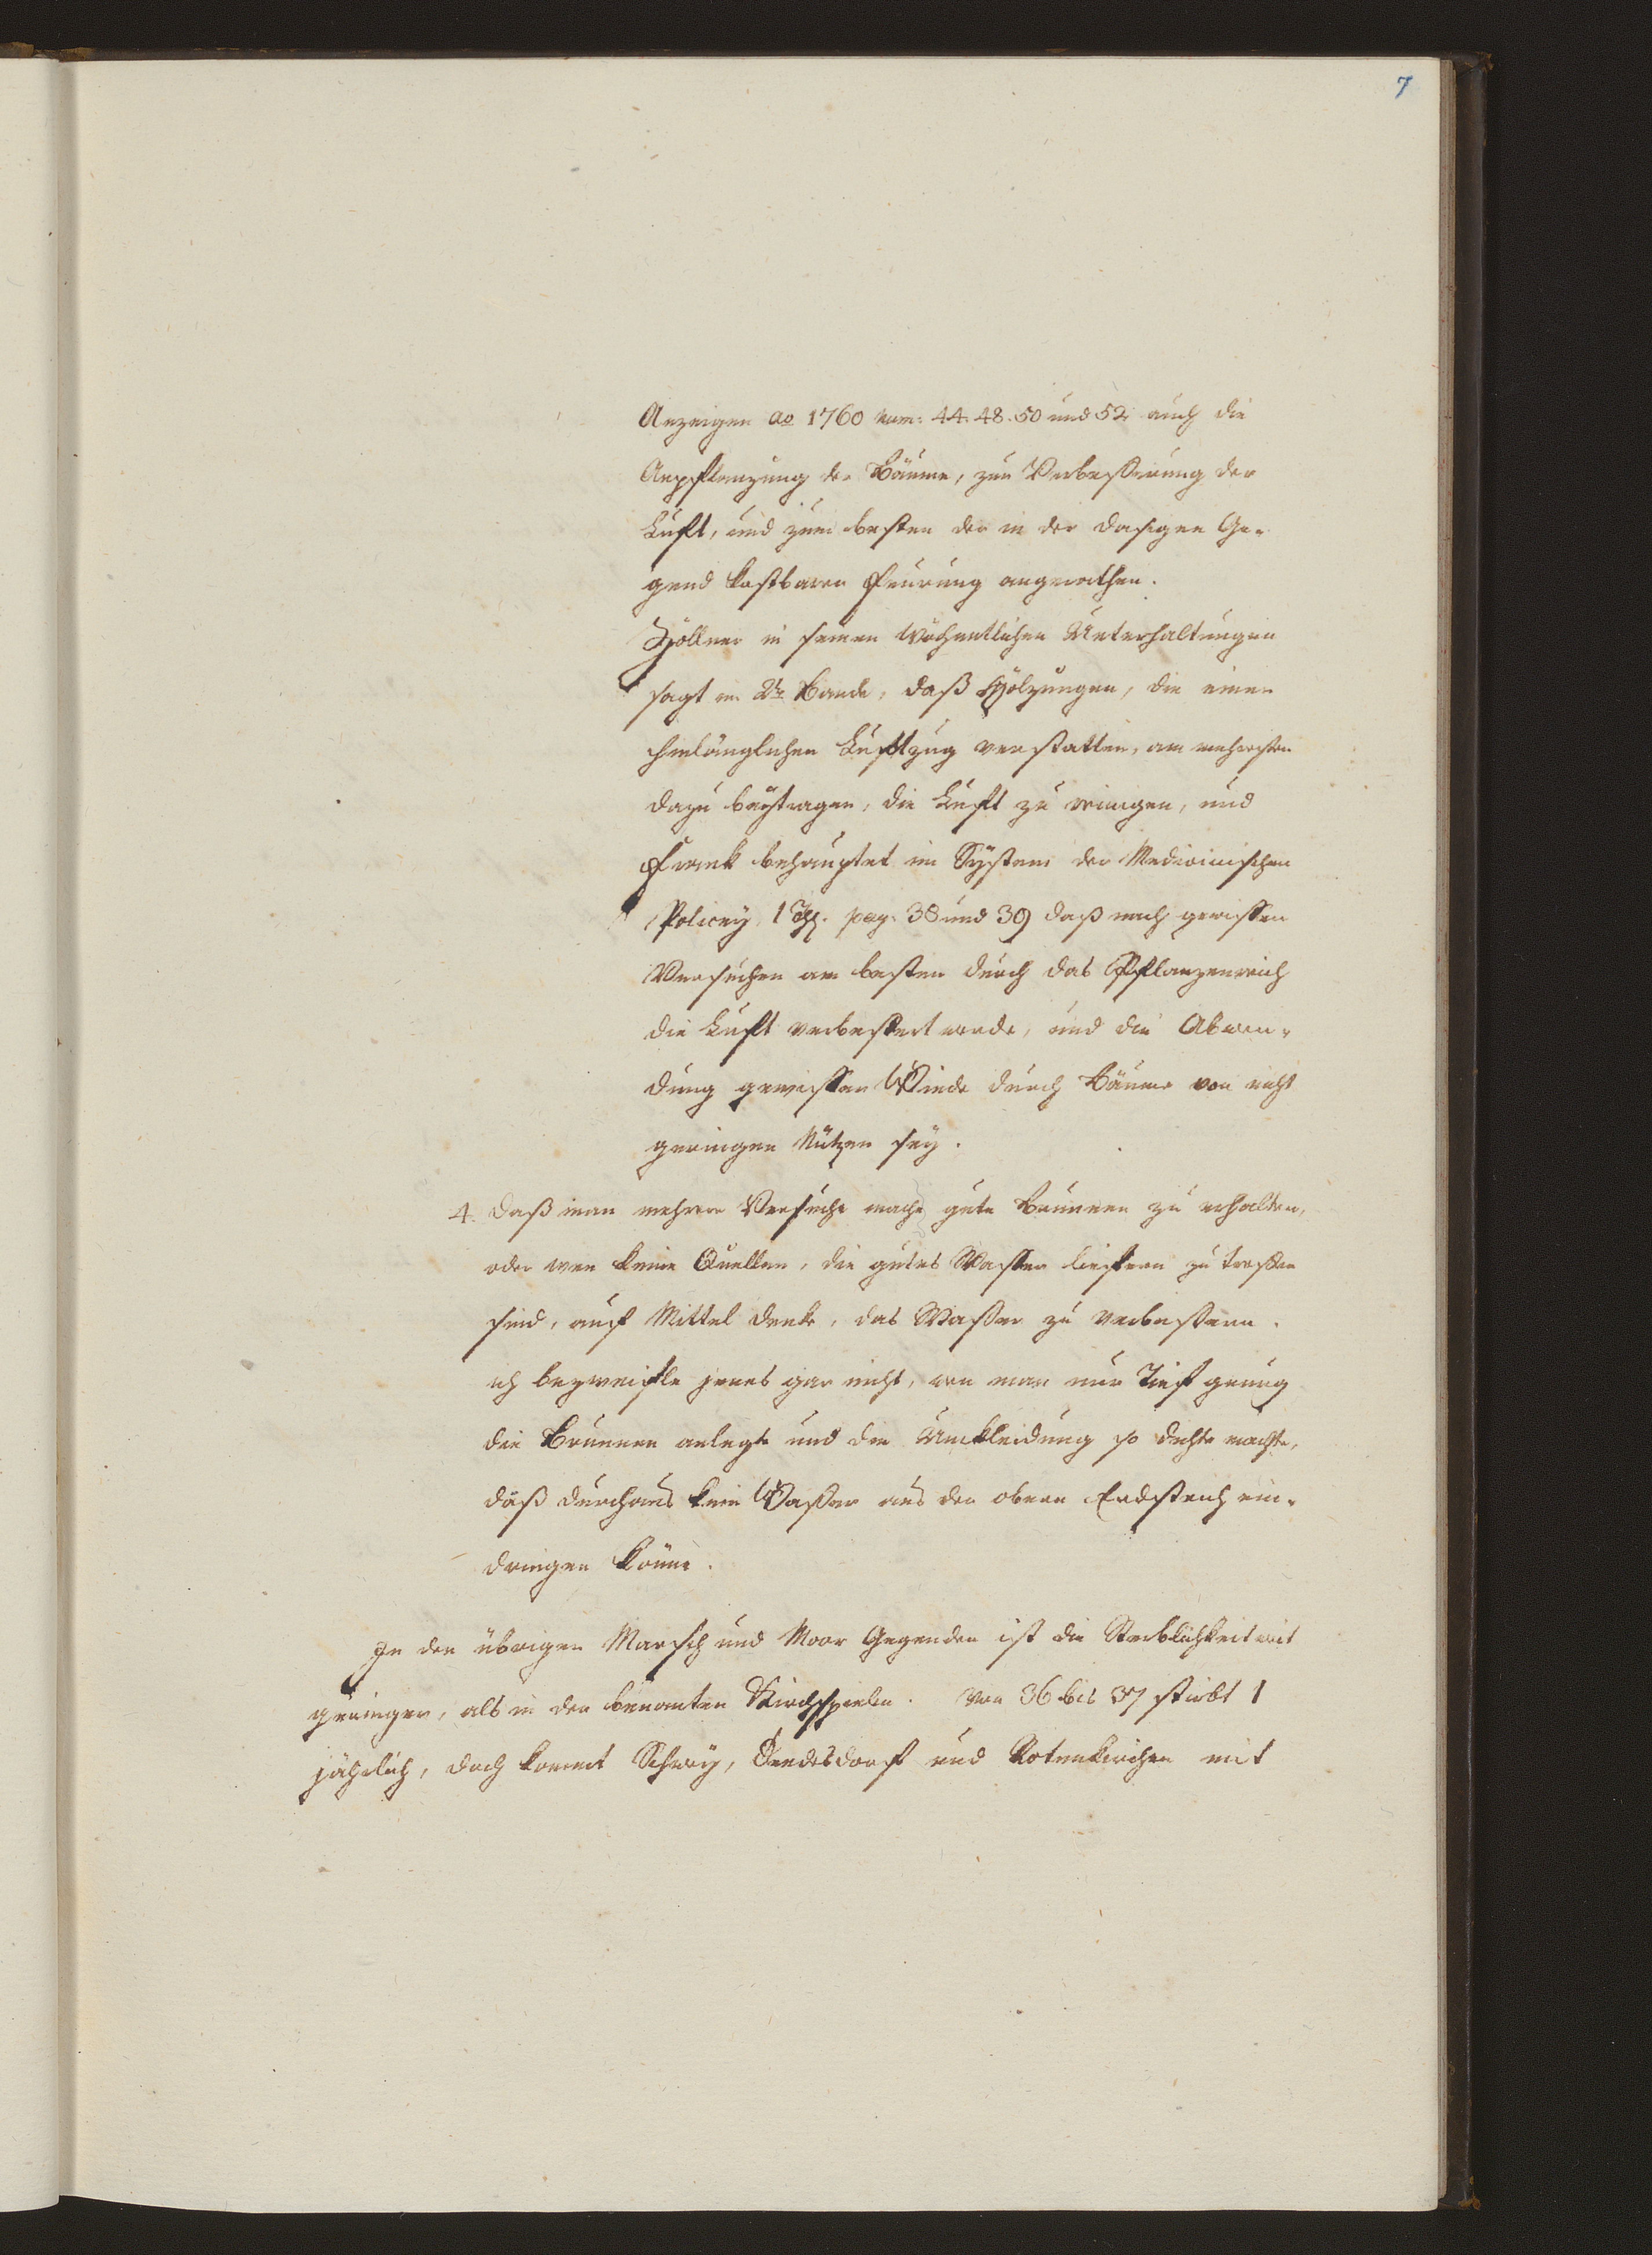 7
Anzeigen ao 1760 num: 44. 48. 50 und 52 auch die
Anpflanzung der Bäume, zur Verbeßerung der
Luft, und zum besten der in der dasigen Ge-
gend kostbaren Feurung angerathen.
Zöllner in seinen wöchentlichen Unterhaltungen
sagt im 2ten Bande, daß Hölzungen, die einen
hinlänglichen Luftzug verstatten, am mehresten
dazu beytragen, die Luft zu reinigen, und
Frank behauptet im System der Medicinischen
Policey 1 Th. pag. 38 und 39 daß nach gewissen
Versuchen am besten durch das Pflanzenreich
die Luft verbeßert werde, und die Abwen-
dung gewisser Winde durch Bäume von nicht
geringen Nutzen sey.
4. daß man mehrere Versuche mache gute Brunnen zu erhalten,
oder wen keine Quellen, die gutes Wasser liefern zu treffen
sind, auf Mittel denke, das Waßer zu verbeßern.
ich bezweifle jenes gar nicht, wen man nur Tief genug
die Brunnen anlegte und die Umkleidung so dichte machte,
daß durchaus kein Waßer aus den obern Erdstrich ein-
dringen könne.
In den übrigen Marsch und Moor Gegenden ist die Sterblichkeit weit
geringer, als in den benanten Kirchspielen. Von 36 bis 37 stirbt 1
jährlich, doch kommt Schwey, Dedesdorf und Rotenkirchen mit